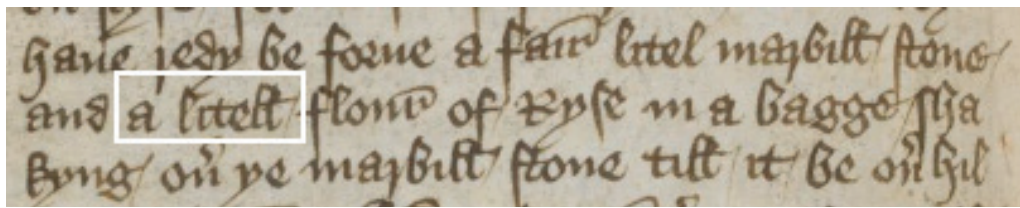 haue redy be forne a fair litel marbill stone
and a litell flour of Ryse in a bagge sha
kyng ou͛ ye marbill stone till it be ou͛ hil